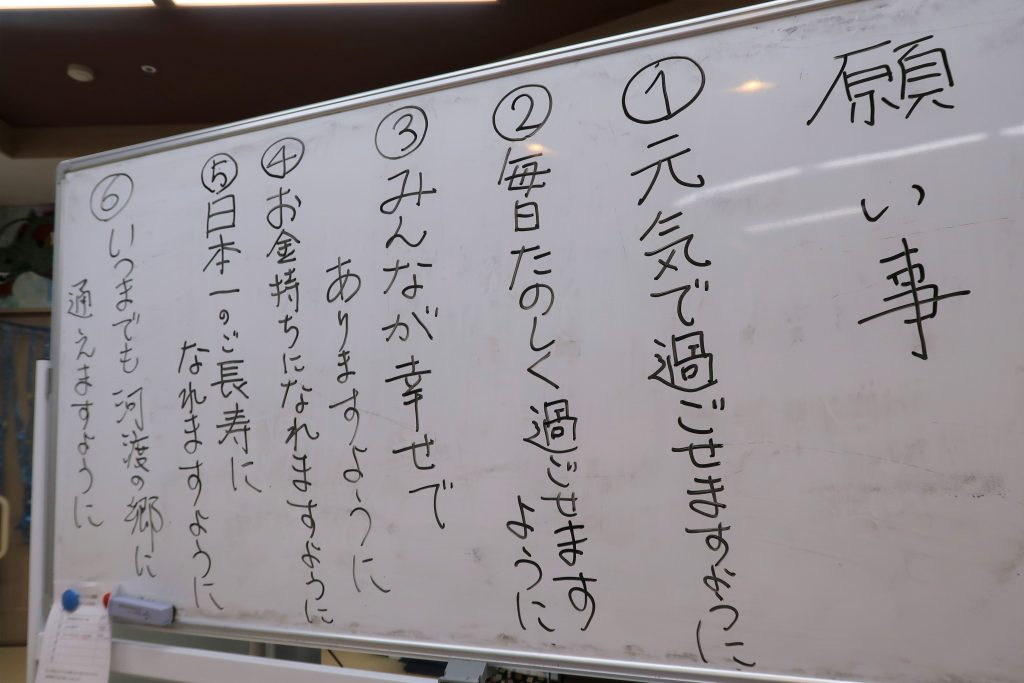 願い事
①元気で過ごせますように
②毎日たのしく過ごせます
ように
③みんなが幸せで
ありますように
④お金持ちになれますように
⑤日本一のご長寿に
なれますように
⑥いつまでも河渡の郷に
通えますように